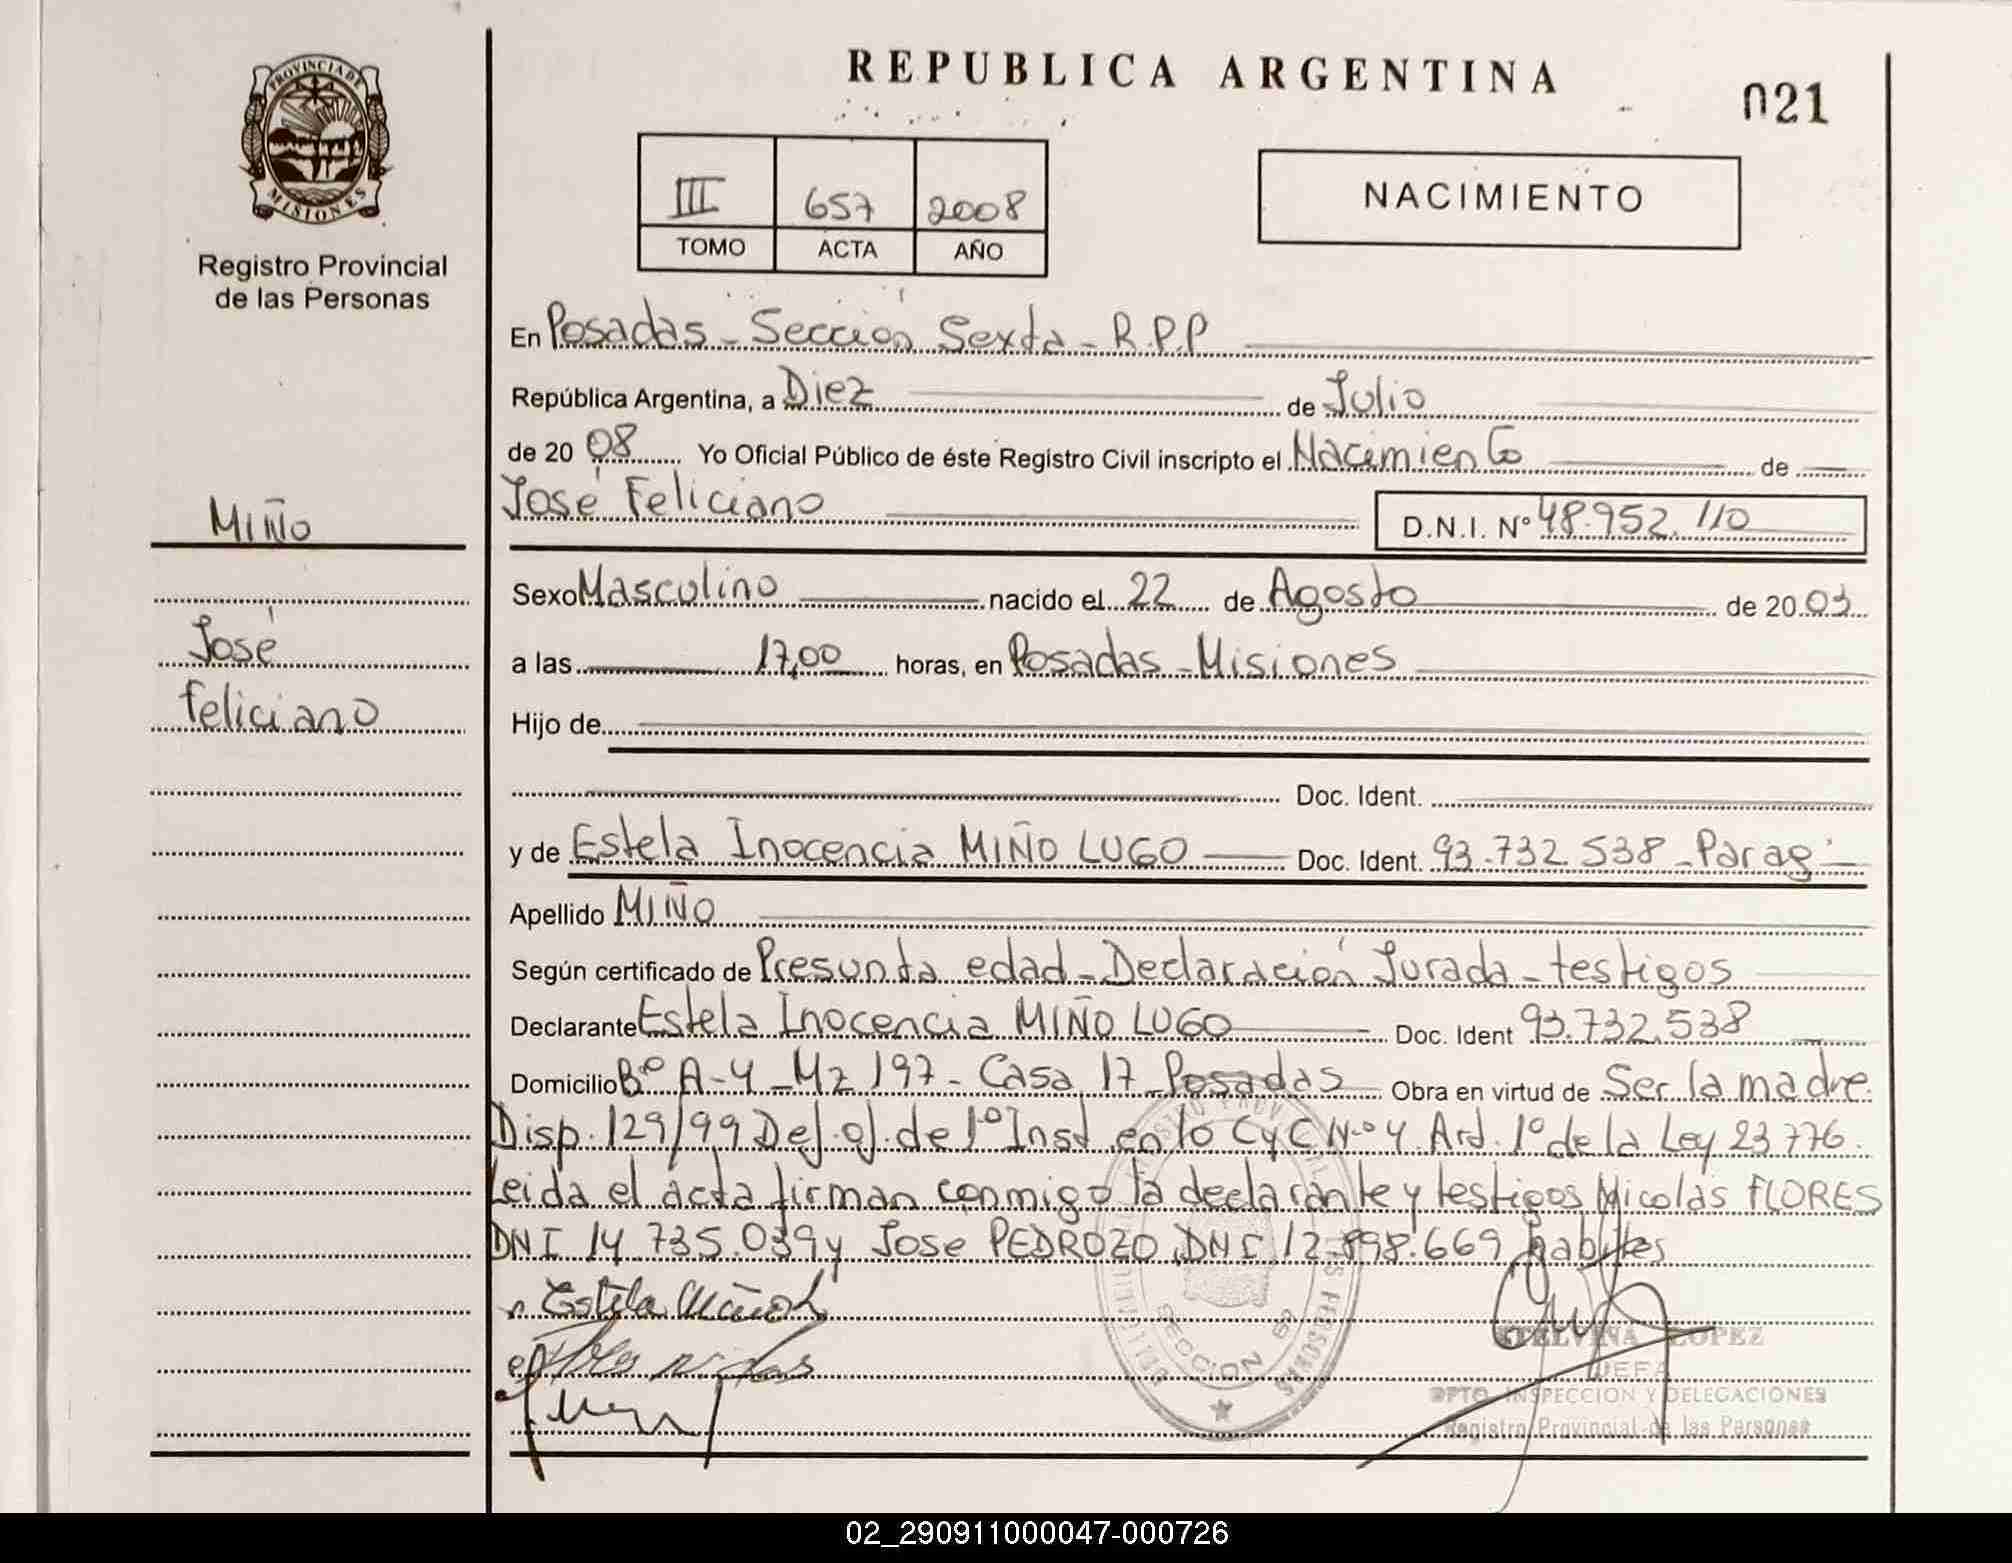 REPUBLICA ARGENTINA
021
PROVINCIA DE
MISIONES
Registro Provincial
de las Personas
III 657 2008
TOMO ACTA AÑO
NACIMIENTO
En Posadas - Sección Sexta - R.P.P
República Argentina, a Diez de Julio
de 20 08 Yo Oficial Público de éste Registro Civil inscripto el Nacimiento de
José Feliciano D.N.I. Nº 48.952.110
MIÑO
José
Feliciano
Sexo Masculino nacido el 22 de Agosto de 2003
a las 17,00 horas, en Posadas - Misiones
Hijo de
Doc. Ident.
y de Estela Inocencia MIÑO LUGO Doc. Ident. 93.732.538 - Parag
Apellido MIÑO
Según certificado de Presunta edad - Declaración Jurada - testigos
Declarante Estela Inocencia MIÑO LUGO Doc. Ident 93.732.538
Domicilio Bº A-4 - Mz 197 - Casa 17 - Posadas Obra en virtud de Ser la madre.
Disp. 129/99 Def. of. de 1º Inst en lo C y C Nº 4 Art. 1º de la Ley 23776.
Leida el acta firman conmigo la declarante y testigos Nicolás FLORES
DNI 14 735.039 y Jose PEDROZO DNI 12.898.669 habiles
Estela Miño L
ETELVINA LOPEZ
JEFA
DPTO. INSPECCION Y DELEGACIONES
Registro Provincial de las Personas
SECCION 6ª
02_290911000047-000726